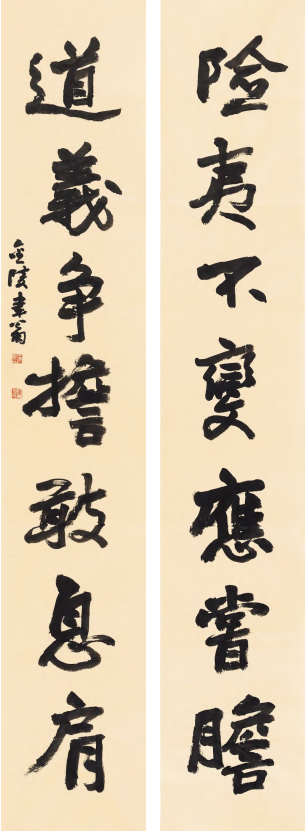 險夷不變應嘗膽
道義争擔敢息肩
金陵聿翁